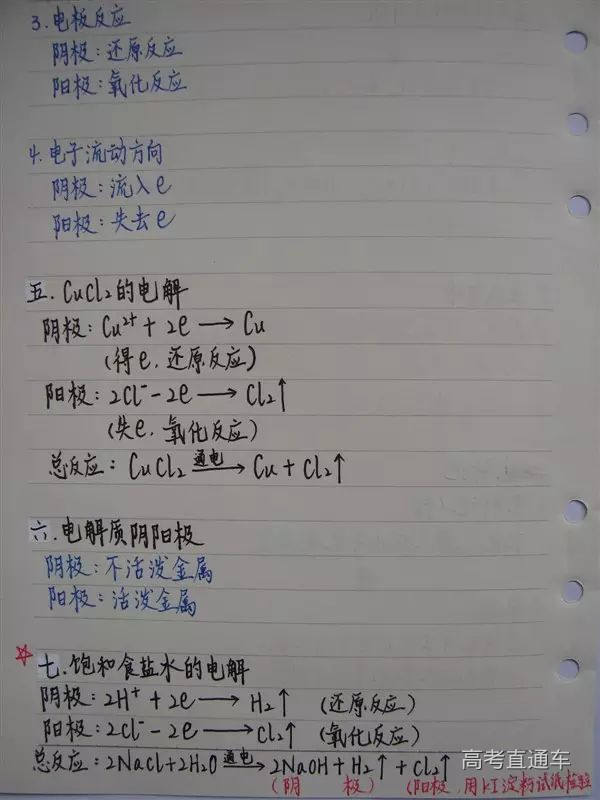 3.电极反应
阴极:还原反应
阳极:氧化反应
4.电子流动方向
阴极:流入e
阳极:失去e
五.CuCl₂的电解
阴极:Cu²⁺+2e⟶Cu
(得e,还原反应)
阳极:2Cl⁻-2e⟶Cl₂↑
(失e,氧化反应)
总反应:CuCl₂ 通电⟶ Cu+Cl₂↑
六.电解质阴阳极
阴极:不活泼金属
阳极:活泼金属
☆七.饱和食盐水的电解
阴极:2H⁺+2e⟶H₂↑ (还原反应)
阳极:2Cl⁻-2e⟶Cl₂↑ (氧化反应)
总反应:2NaCl+2H₂O 通电⟶ 2NaOH+H₂↑+Cl₂↑
(阴 极) (阳极,用KI淀粉试纸检验
高考直通车